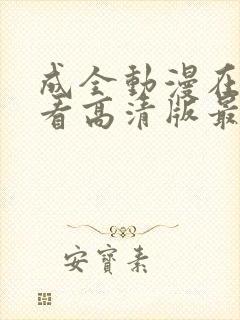 成全動漫在
看高清版最
安寶素